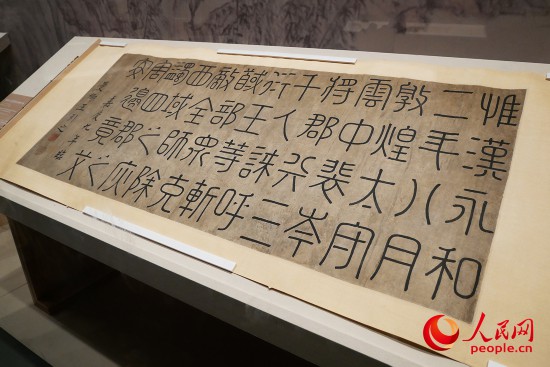 惟漢永和
二年八月
敦煌太守
雲中裴岑
將郡兵三
千人誅呼
衍王等斬
馘部眾克
敵全師除
西域之疢
蠲四郡之
害邊竟艾
人民网
people.cn